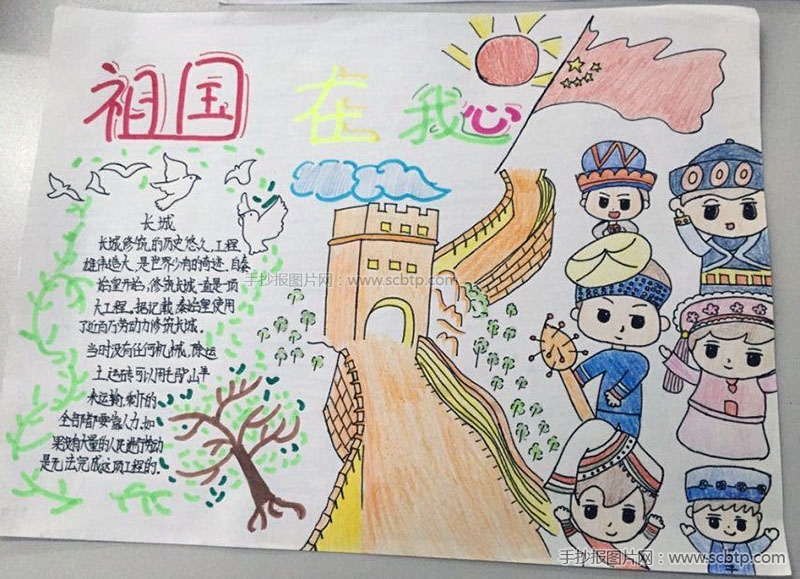 祖国 在 我心
长城
长城修筑的历史悠久,工程
雄伟浩大,是世界少有的奇迹,自秦
始皇开始,修筑长城一直是一项
大工程。据记载,秦始皇使用
了近百万劳动力修筑长城。
当时没有任何机械,除运
土运砖可以用毛驴山羊
来运输,剩下的
全部都要靠人力,如
果没有大量的人民进行劳动
是无法完成这项工程的。
手抄报图片网:www.scbtp.com
手抄报图片网:www.scbtp.com